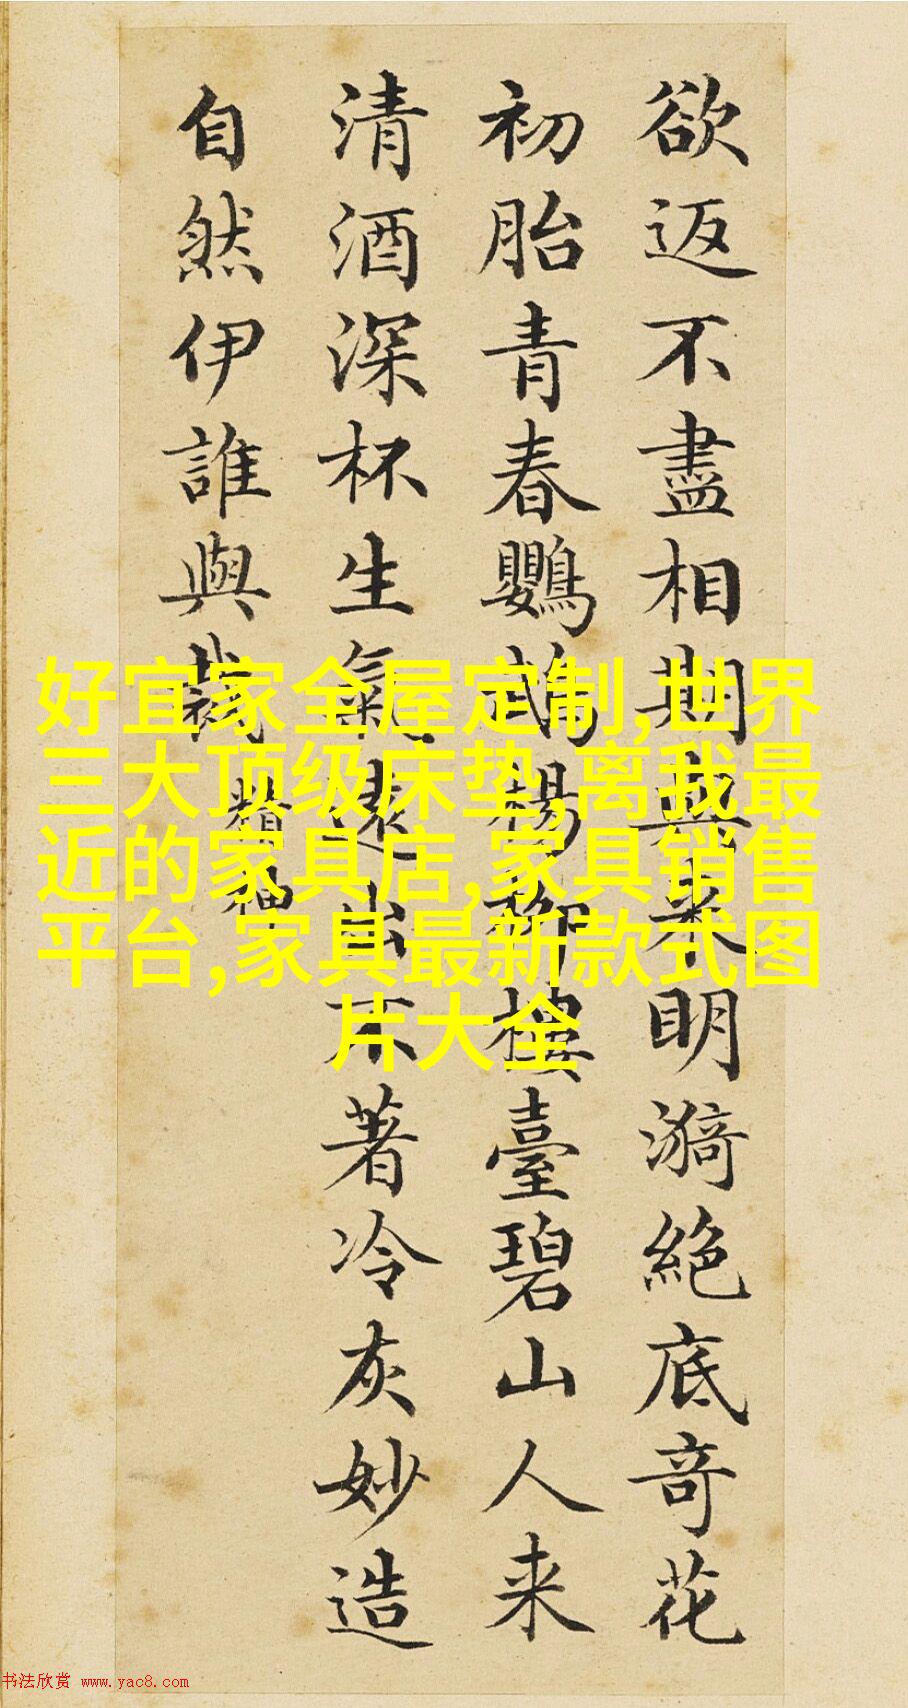 欲返不盡相期與来明漪絕底奇花
初胎青春鸚鵡楊柳樓臺碧山人来
清酒深杯生氣遠出不著冷灰妙造
自然伊誰與裁
精神
好宜家全屋定制,世界
三大顶级床垫,离我最
近的家具店,家具销售
平台,家具最新款式图
片大全
书法欣赏 www.yac8.com